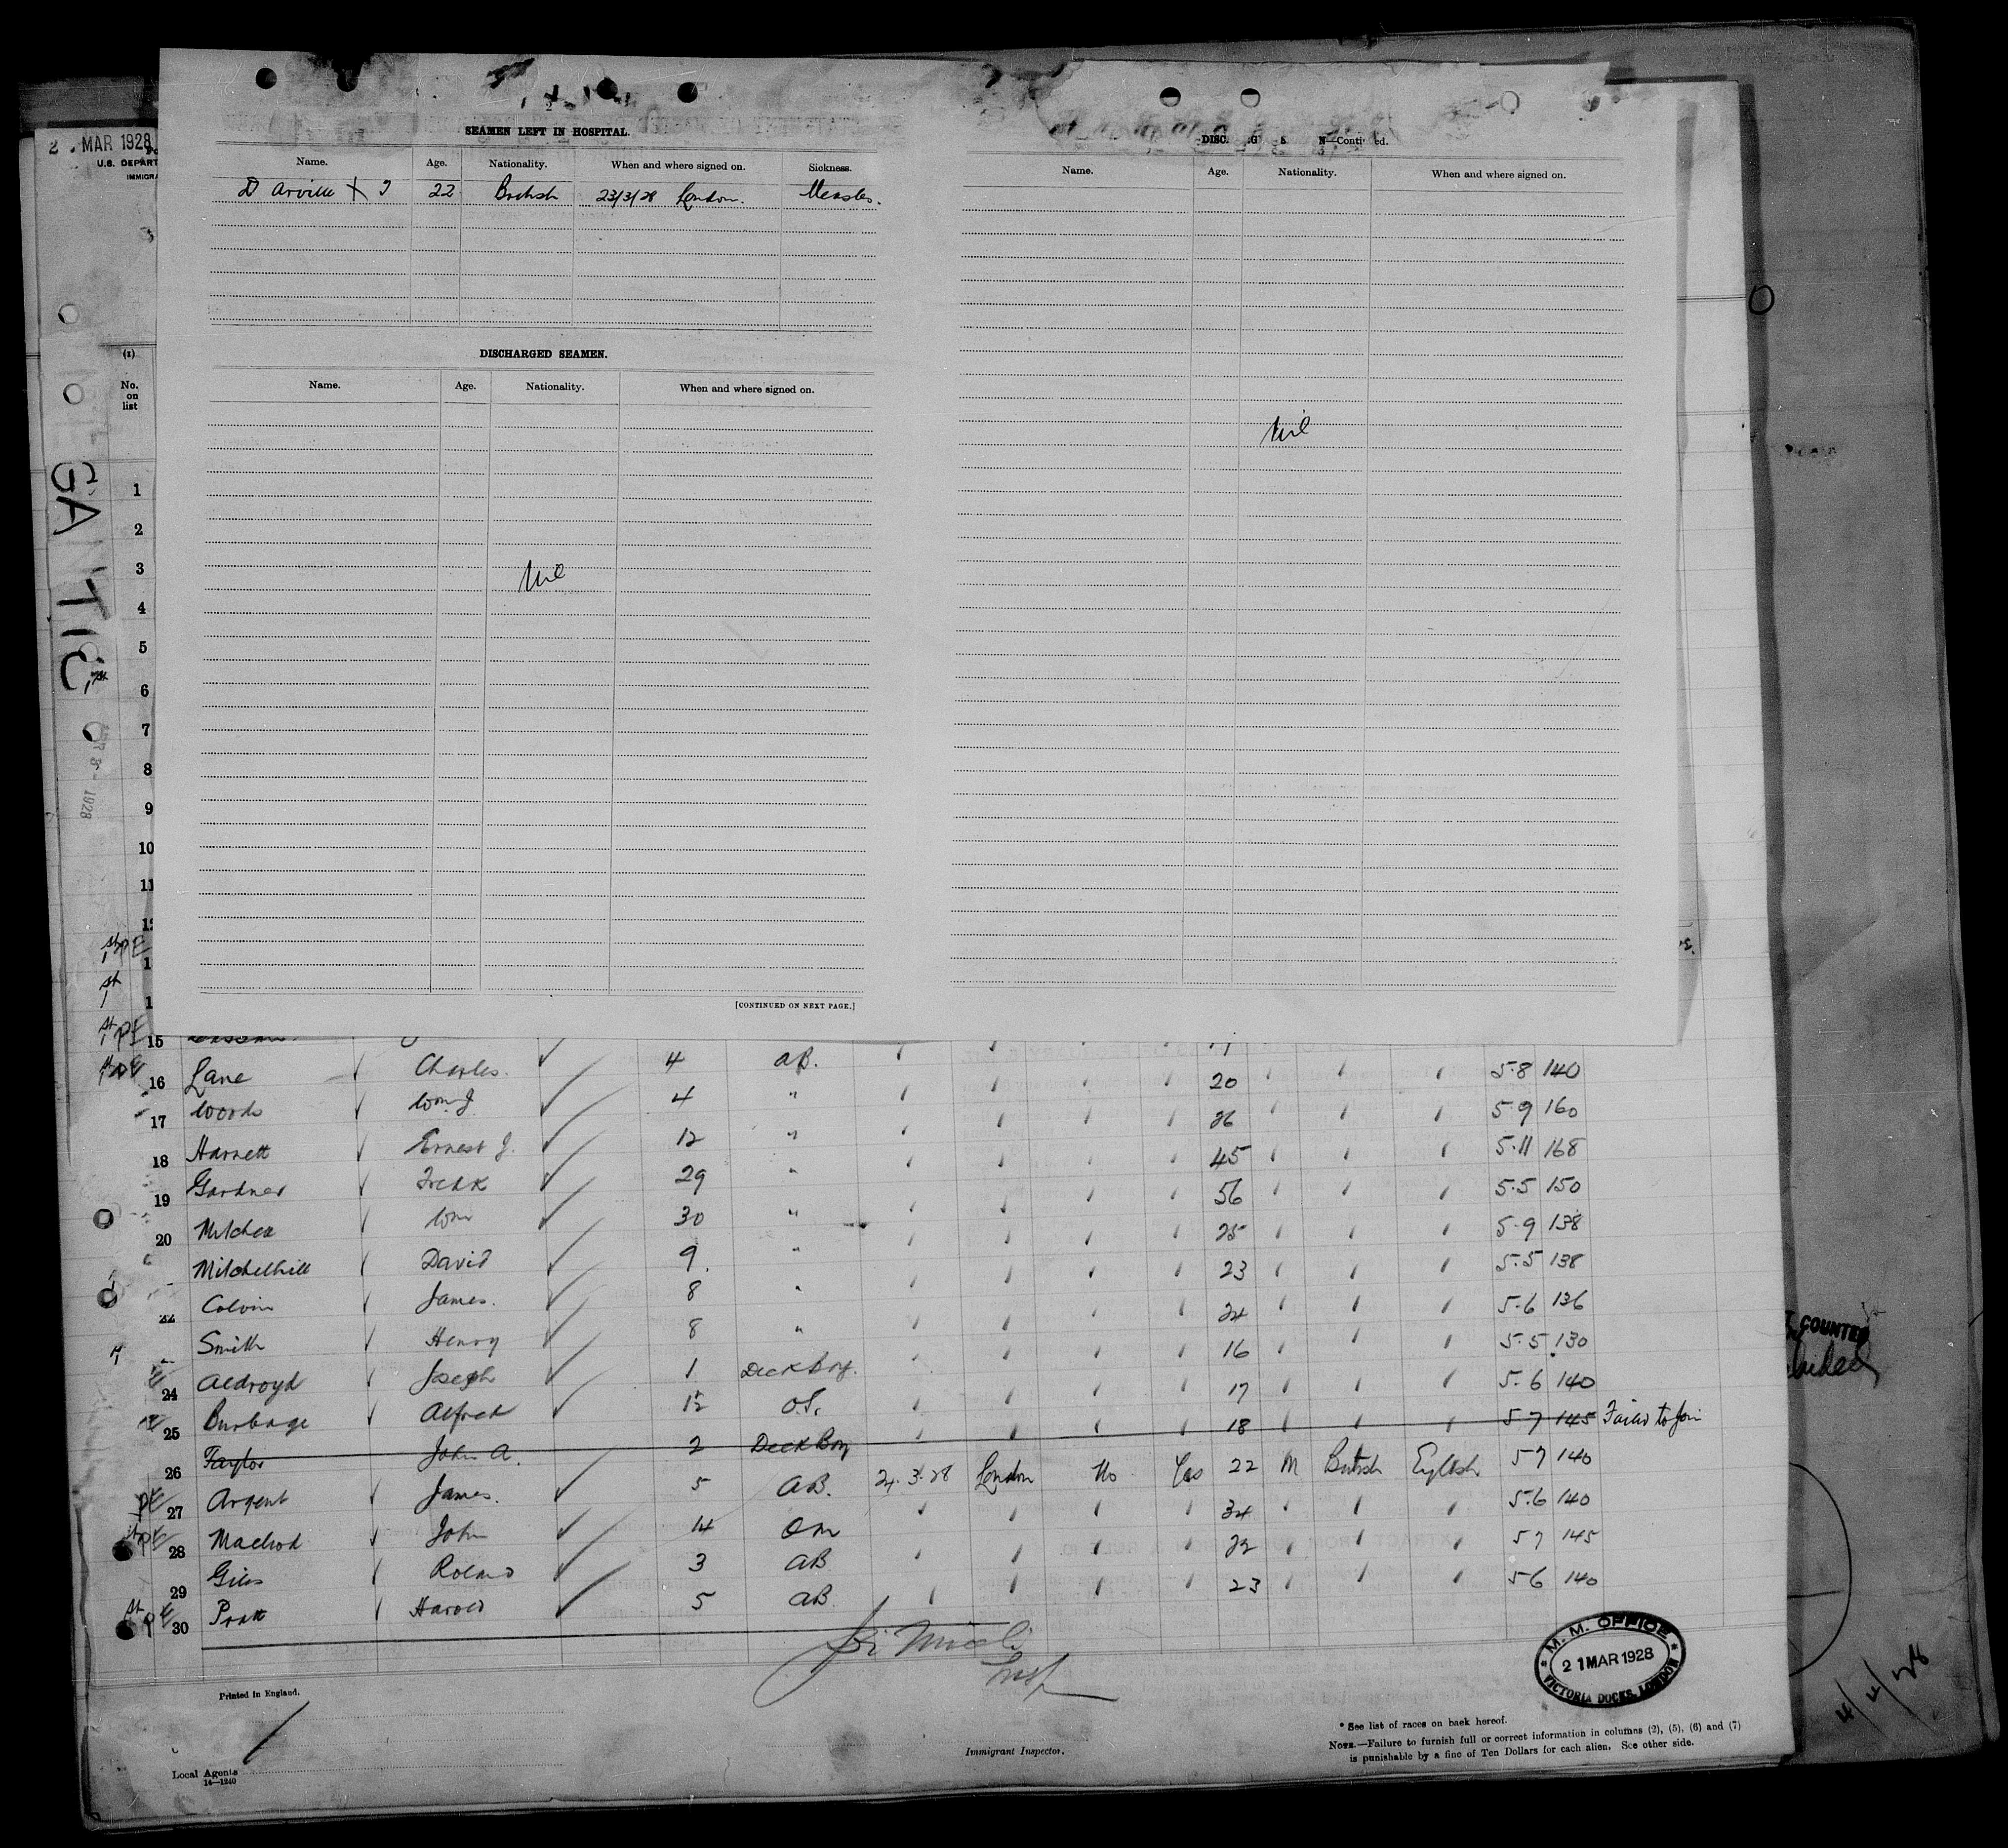 2 MAR 1928
U.S. DEPART
IMMIGRA
SEAMEN LEFT IN HOSPITAL.
Name. Age. Nationality. When and where signed on. Sickness.
D Arville X J 22 British 23/3/28 London. Measles.
DISCHARGED SEAMEN.
Name. Age. Nationality. When and where signed on.
Nil
[CONTINUED ON NEXT PAGE.]
Name. Age. Nationality. When and where signed on.
Nil
(1)
No. on list
GANTIC
1928
1
2
3
4
5
6
7
8
9
10
11
15
16 Lane Charles. 4 AB. 20 5-8 140
17 Woods Wm J. 4 " 26 5 9 160
18 Harnett Ernest J. 12 " 45 5-11 168
19 Gardner Fredk 29 " 56 5-5 150
20 Wm 30 " 25 5-9 138
Mitchelhill David 9. " 23 5-5 138
22 Colvin James. 8 " 24 5-6 136
Smith Henry 8 " 16 5-5 130
24 Aldroyd Joseph 1 Deck Boy. 17 5-6 140
25 Burbage Alfred 12 O.S. 18 5 7 145 Failed to join
26 Taylor John A. 2 Deck Boy
27 Argent James. 5 AB. 21.3.28 London No Yes 22 M British English 5 7 140
28 Macleod John 14 34 5.6 140
29 Giles Roland 3 AB 22 5 7 145
30 Pratt Harold 5 AB 23 5 6 140
Insp
Printed in England.
Local Agents
14—1240
Immigrant Inspector.
M. M. OFFICE
21 MAR 1928
VICTORIA DOCKS, LONDON
* See list of races on back hereof.
NOTE.—Failure to furnish full or correct information in columns (2), (5), (6) and (7)
is punishable by a fine of Ten Dollars for each alien. See other side.
COUNTED
4/4/28